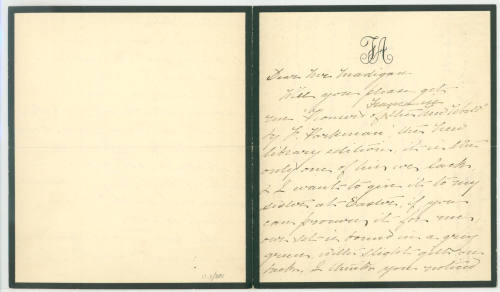 FA
Dear Mr Madigan
Will you please get
me "Pioneers of France in the New World"
by F. Parkman, the new
library edition, it is the
only one of his we lack
& I want to give it to my
sister at Easter, if you
can procure it for me,
our set is bound in a grey
green, with slight gilt on
backs. I think you noticed